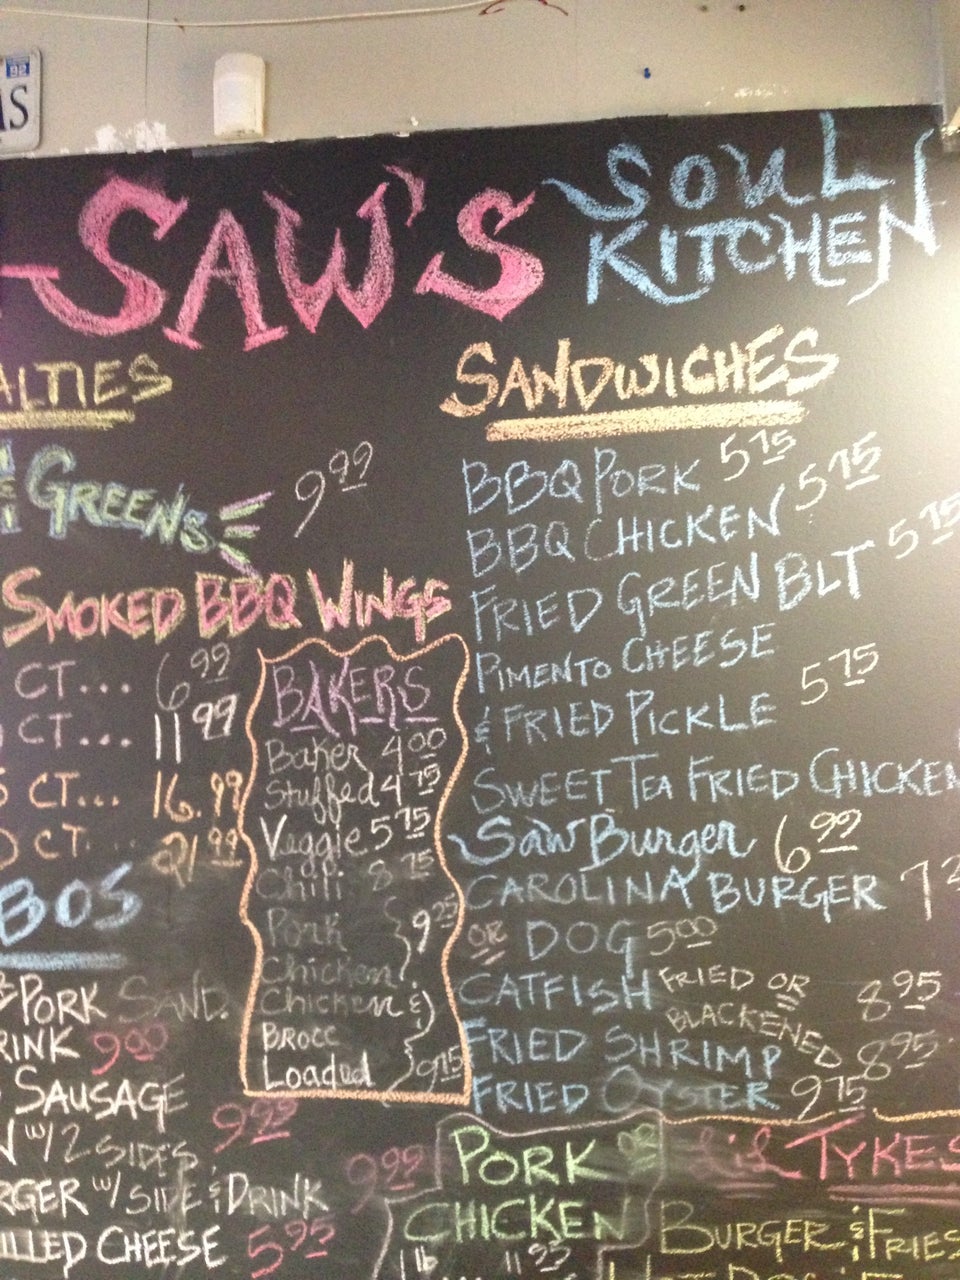 92
AS
SAW'S SOUL
KITCHEN
ALTIES
GREENS 9.99
SMOKED BBQ WINGS
CT... 6.99
CT... 11.99
CT... 16.99
CT... 21.99
BAKERS
Baker 4.00
Stuffed 4.75
Veggie 5.75
Chili 8.75
Pork
Chicken 9.25
Chicken &
Brocc
Loaded 9.75
BOS
PORK SAND.
RINK 9.00
SAUSAGE
N W/ 2 SIDES 9.25
RGER W/ SIDE & DRINK 9.99
ILLED CHEESE 5.95
SANDWICHES
BBQ PORK 5.75
BBQ CHICKEN 5.75
FRIED GREEN BLT 5.75
PIMENTO CHEESE
& FRIED PICKLE 5.75
SWEET TEA FRIED CHICKEN
Saw Burger 6.99
CAROLINA BURGER 7.2
OR DOG 5.00
CATFISH FRIED OR BLACKENED 8.95
FRIED SHRIMP 8.95
FRIED OYSTER 9.75
PORK OR
CHICKEN
1 lb 11.95
Lil TYKES
BURGER & FRIES